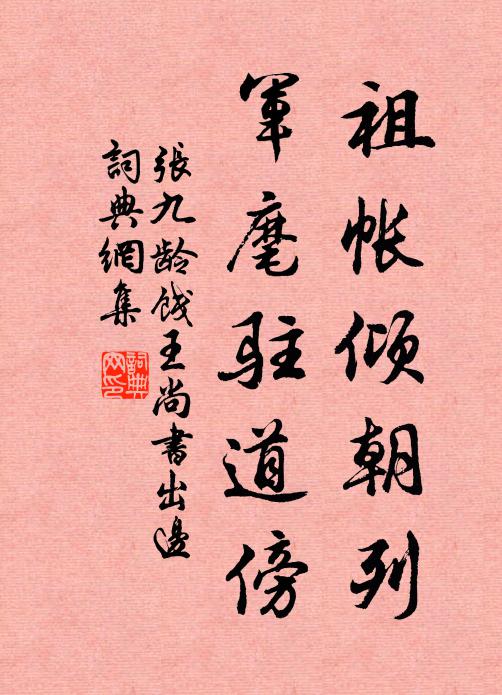 祖帳傾朝列
軍麾駐道傍
張九齡餞王尚書出邊
詞典網集
詞典網印